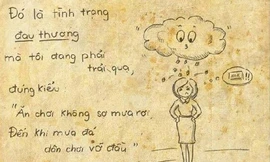 Đó là tình trạng
đau thương
mà tôi đang phải
trải qua,
đúng kiểu
"Ăn chơi không sợ mưa rơi
Đến khi mưa đá
dân chơi vỡ đầu"